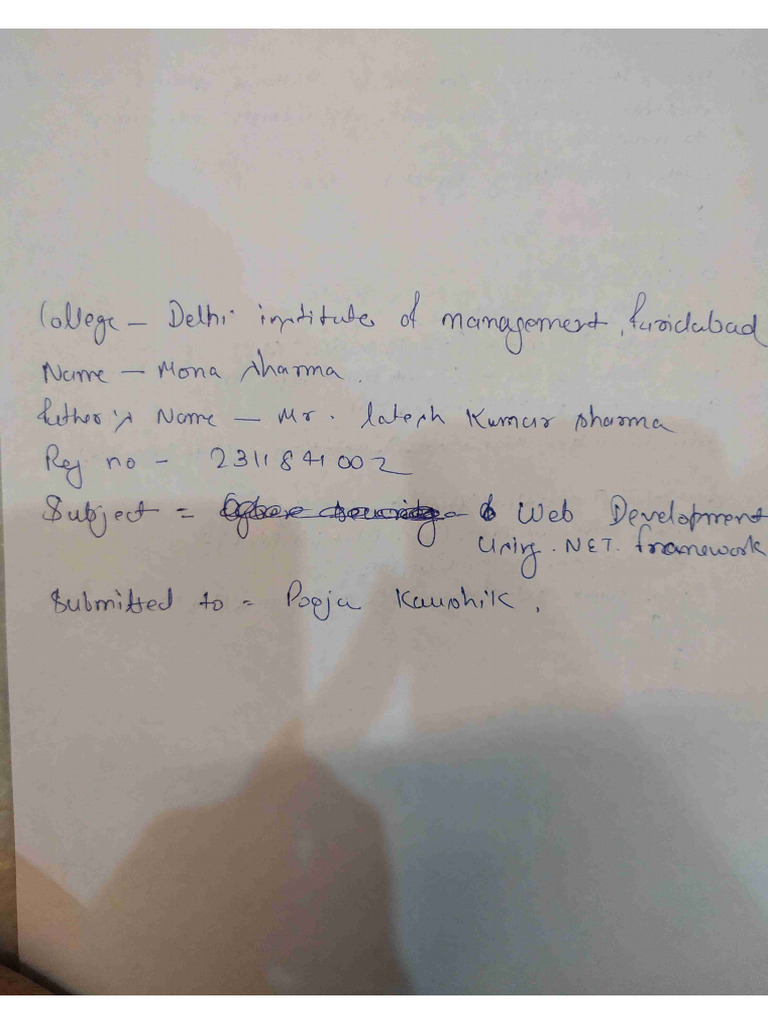 College – Delhi institute of management, faridabad
Name – Mona sharma.
father's Name – Mr. latesh Kumar sharma
Reg no - 2311841002
Subject = Cyber security Web Development
Using .NET. framework
Submitted to = Pooja Kaushik.